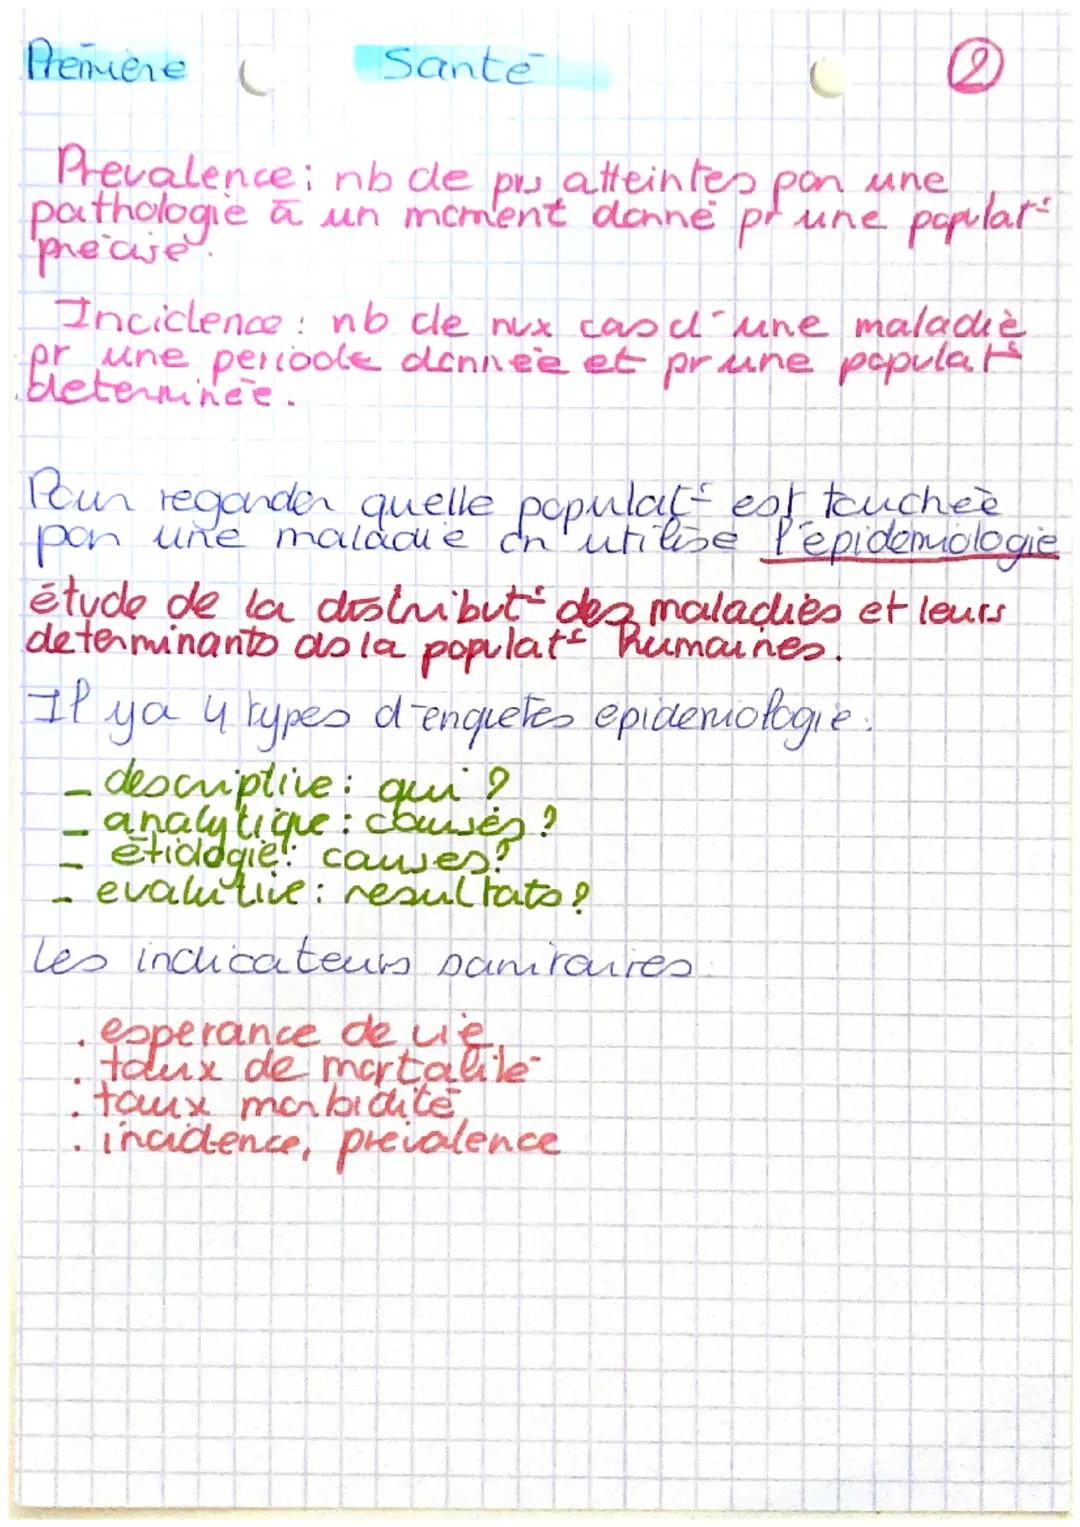 Première Santé 2
Prévalence : nb de prs atteintes par une
pathologie à un moment donné pr une populat°
précise.
Incidence : nb de nvx cas d'une maladie
pr une période donnée et pr une populat°
determinée.
Pour regarder quelle populat° est touchée
par une maladie on utilise l'épidemiologie
étude de la distribut° des maladies et leurs
determinants ds la populat° humaines.
Il ya 4 types d'enquetes epidemiologie :
- descriptive : qui ?
- analytique : causes ?
- étiologie : causes ?
- evalutive : resultats ?
les indicateurs sanitaires
. esperance de vie
. taux de mortalité
. taux morbidité
. incidence, prévalence